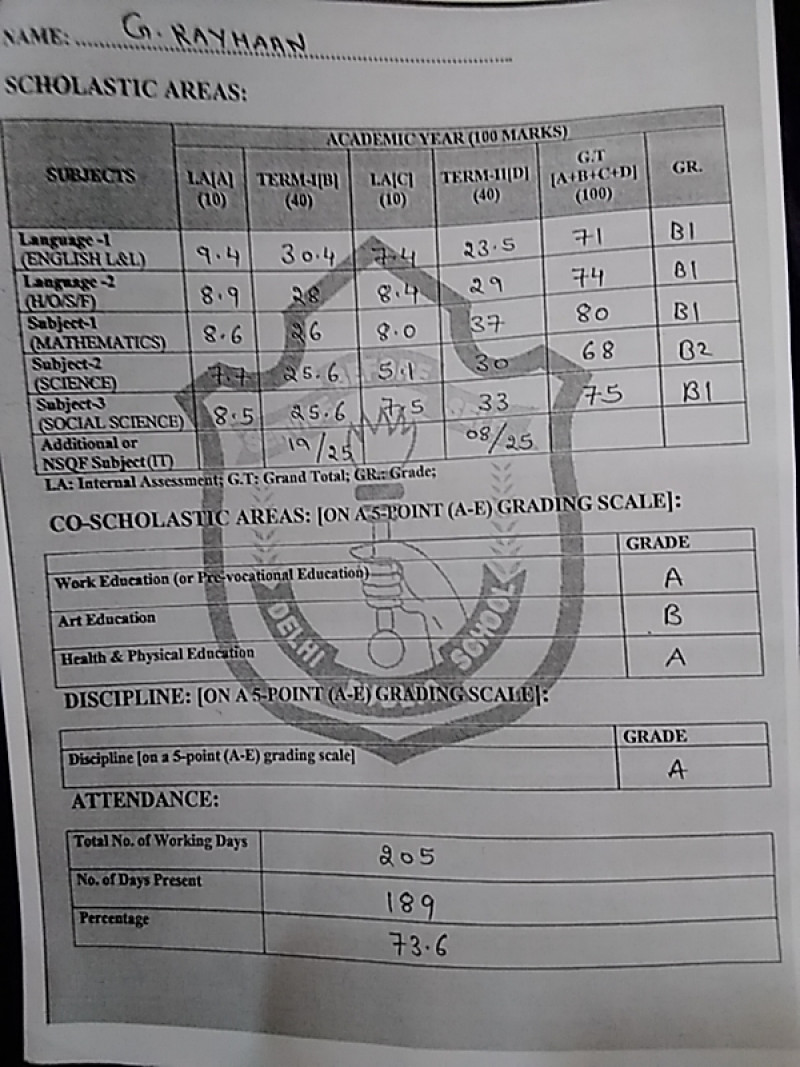 NAME: G. RAYHAAN
SCHOLASTIC AREAS:
SUBJECTS
ACADEMIC YEAR (100 MARKS)
LA[A] (10) TERM-I[B] (40) LA[C] (10) TERM-II[D] (40) G.T [A+B+C+D] (100) GR.
Language -1 (ENGLISH L&L) 9.4 30.4 7.4 23.5 71 B1
Language -2 (H/O/S/F) 8.9 28 8.4 29 74 B1
Subject-1 (MATHEMATICS) 8.6 26 8.0 37 80 B1
Subject-2 (SCIENCE) 7.7 25.6 5.1 30 68 B2
Subject-3 (SOCIAL SCIENCE) 8.5 25.6 7.5 33 75 B1
Additional or NSQF Subject (IT) 19/25 08/25
LA: Internal Assessment; G.T: Grand Total; GR.: Grade;
CO-SCHOLASTIC AREAS: [ON A 5-POINT (A-E) GRADING SCALE]:
GRADE
Work Education (or Pre-vocational Education) A
Art Education B
Health & Physical Education A
DELHI SCHOOL
DISCIPLINE: [ON A 5-POINT (A-E) GRADING SCALE]:
GRADE
Discipline [on a 5-point (A-E) grading scale] A
ATTENDANCE:
Total No. of Working Days 205
No. of Days Present 189
Percentage 73.6